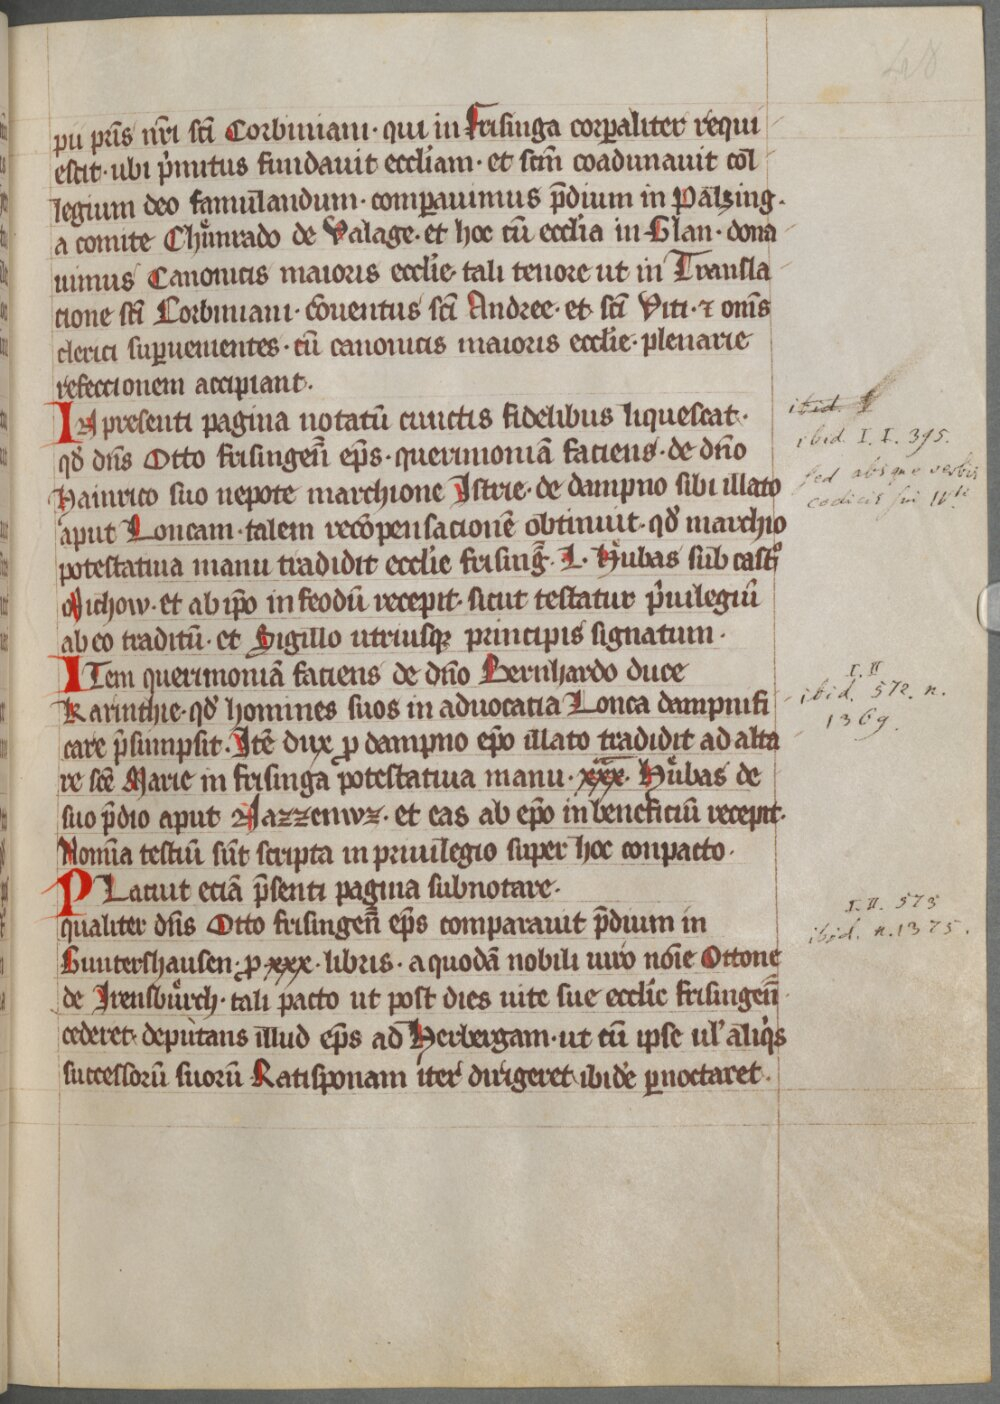 48
pii pr̄is nr̄i sc̄i Corbiniani · qui in Frisinga corꝑaliter requi
escit · ubi p͛mitus fundauit eccl̄iam · et sc̄m coadunauit col
legium deo famulandum · comparauimus p̄dium in Palzing ·
a comite Chůnrado de Valage · et hoc cū eccl̄ia in Glan · dona
uimus Canonicis maioris eccl̄ie · tali tenore ut in Transla
cione sc̄i Corbiniani · c̄ouentus sc̄i Andree · et sc̄i Viti · ⁊ om̄s
clerici suꝑuenientes · cū canonicis maioris eccl̄ie · plenarie
refeccionem accipiant ·
In presenti pagina notatū cunctis fidelibus liquescat ·
qd̄ dn̄s Otto frisingen̄ ep̄s · querimoniā faciens · de dn̄o
Hainrico suo nepote marchione Istrie · de dampno sibi illato
aput Loncam · talem recōpensacionē obtinuit · qd̄ marchio
potestatiua manu tradidit eccl̄ie frisinḡ · L · Hůbas sub cast͛
Michow · et ab ip̄o in feodū recepit · sicut testatur p͛uilegiū
ab eo traditū · et Sigillo utriusqꝫ principis signatum ·
ITem querimoniā faciens de dn̄o Bernhardo duce
Karinthie · qd̄ homines suos in aduocatia Lonca dampnifi
care p̄sumpsit · Itē dux ꝓ dampno ep̄o illato tradidit ad alta
re sc̄e Marie in frisinga potestatiua manu · xxx · Hůbas de
suo p̄dio aput Nazzenvvz · et eas ab ep̄o in beneficiū recepit ·
Nomīa testiū sūt scripta in priuilegio super hoc conpacto ·
PLacuit eciā p̄senti pagina subnotare ·
qualiter dn̄s Otto frisingen̄ ep̄s comparauit p̄dium in
Guntershausen · ꝓ xxx · libris · a quodā nobili uiro noīe Ottone
de Irensbůrch · tali pacto ut post dies uite sue eccl̄ie frisingen̄ ·
cederet · deputans illud ep̄s ad Herbergam · ut cū ipse ul̓ aliq͛s
successorū suorū Ratisponam iter dirigeret ibidē ꝑnoctaret ·
ibid. I
ibid. I. I. 395.
sed absque verbis
codicis sui
I. II
ibid. 572. n.
1369.
I. II. 573
ibid. n. 1375.